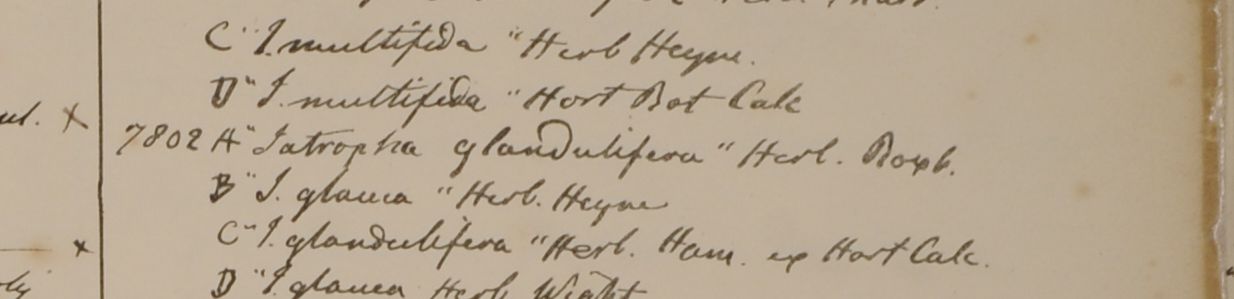 C "J. multifida" Herb Heyne.
D "J. multifida" Hort Bot Calc
7802 A "Jatropha glandulifera" Herb. Roxb.
B "J. glauca" Herb. Heyne
C "J. glandulifera" Herb. Ham. ex Hort Calc.
D "J. glauca Herb. Wight